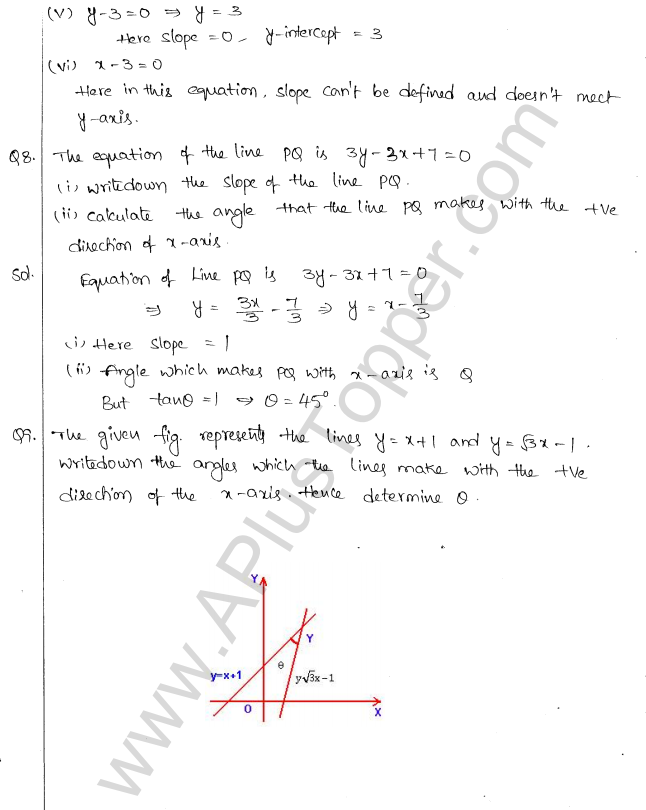 (v) y-3=0 ⇒ y = 3
Here slope = 0, y-intercept = 3
(vi) x-3=0
Here in this equation, slope can't be defined and doesn't meet
y-axis.
Q8. The equation of the line PQ is 3y-3x+7=0
(i) writedown the slope of the line PQ.
(ii) calculate the angle that the line PQ makes with the +ve
direction of x-axis.
Sol. Equation of Line PQ is 3y-3x+7=0
⇒ y = 3x/3 - 7/3 ⇒ y = x - 7/3
(i) Here slope = 1
(ii) Angle which makes PQ with x-axis is Q
But tanθ = 1 ⇒ θ = 45°.
Q9. The given fig. represents the lines y = x+1 and y = √3x-1.
writedown the angles which the lines make with the +ve
direction of the x-axis. Hence determine θ.
Y
Y
θ
y=x+1
y√3x-1
O
X
www.APlusTopper.com